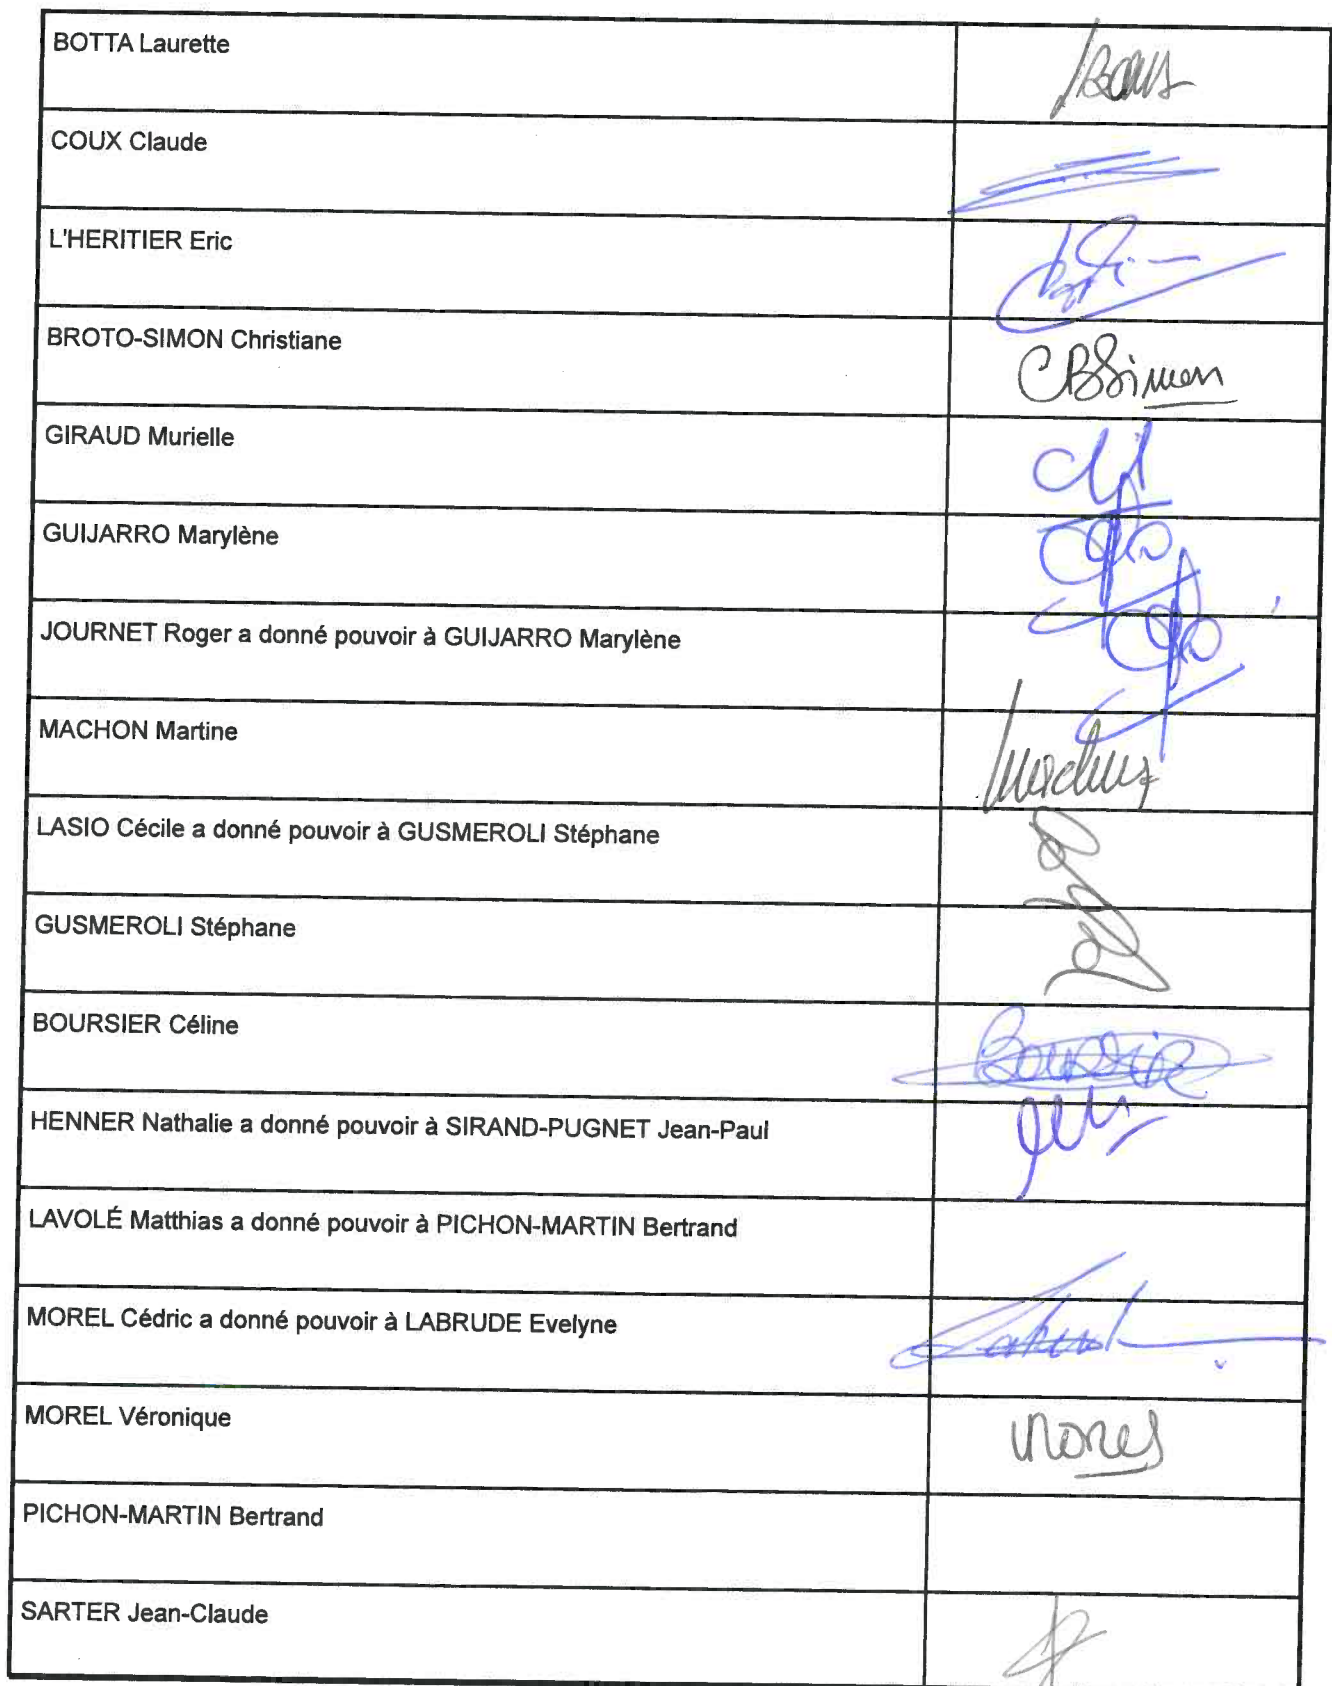 BOTTA Laurette
COUX Claude
L'HERITIER Eric
BROTO-SIMON Christiane
CBSimon
GIRAUD Murielle
GUIJARRO Marylène
JOURNET Roger a donné pouvoir à GUIJARRO Marylène
MACHON Martine
LASIO Cécile a donné pouvoir à GUSMEROLI Stéphane
GUSMEROLI Stéphane
BOURSIER Céline
HENNER Nathalie a donné pouvoir à SIRAND-PUGNET Jean-Paul
LAVOLÉ Matthias a donné pouvoir à PICHON-MARTIN Bertrand
MOREL Cédric a donné pouvoir à LABRUDE Evelyne
MOREL Véronique
PICHON-MARTIN Bertrand
SARTER Jean-Claude